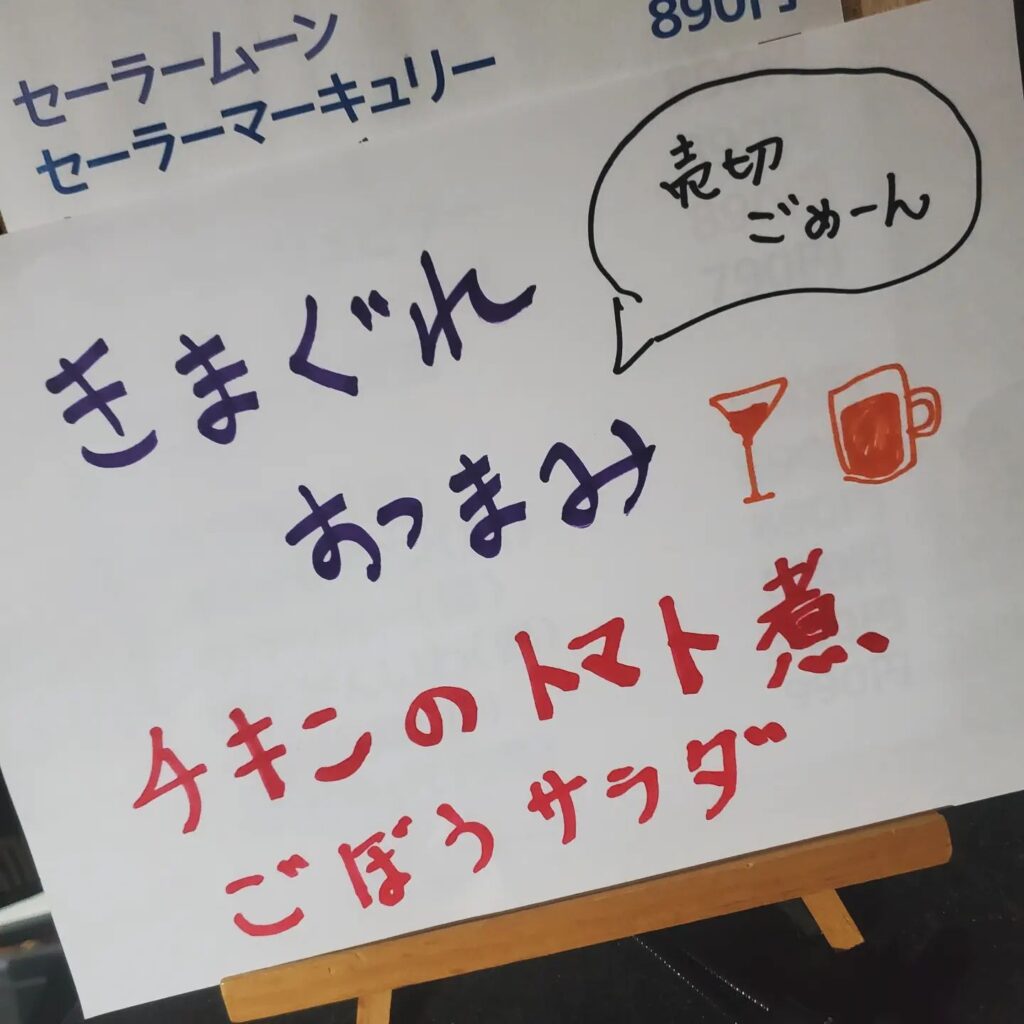 セーラームーン
セーラーマーキュリー
890円
売切
ごめーん
きまぐれ
おっまみ
チキンのトマト煮、
ごぼうサラダ